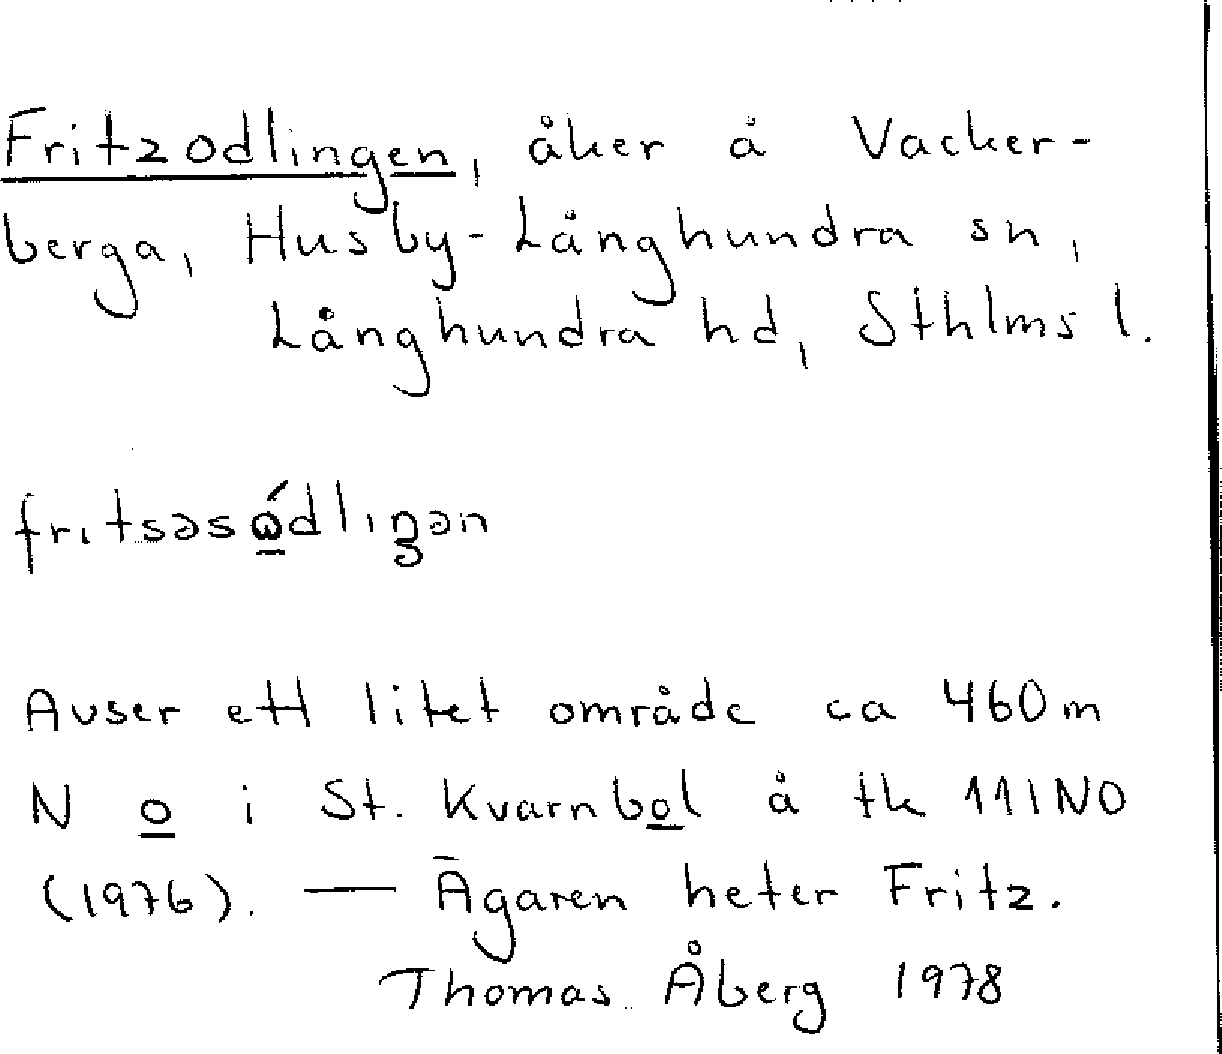 Fritzodlingen, åker å Vacker-
berga, Husby-Långhundra sn,
Långhundra hd, Sthlms l.
fritsəsɷ́dlıŋən
Avser ett litet område ca 460 m
N o i St. Kvarnbol å tk 11I NO
(1976). — Ägaren heter Fritz.
Thomas Åberg 1978